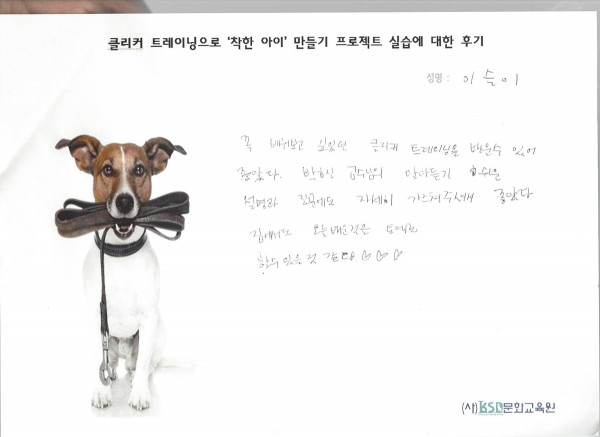 클리커 트레이닝으로 '착한 아이' 만들기 프로젝트 실습에 대한 후기
성명 : 이슬이
꼭 배워보고 싶었던 클리커 트레이닝을 배울수 있어
좋았다. 교수님의 알아듣기 쉬운
설명과 자세히 가르쳐주셔서 좋았다
집에서도 오늘 배운것은 토대로
할수 있을 것 같다 ♡♡♡
(사)KSD문화교육원